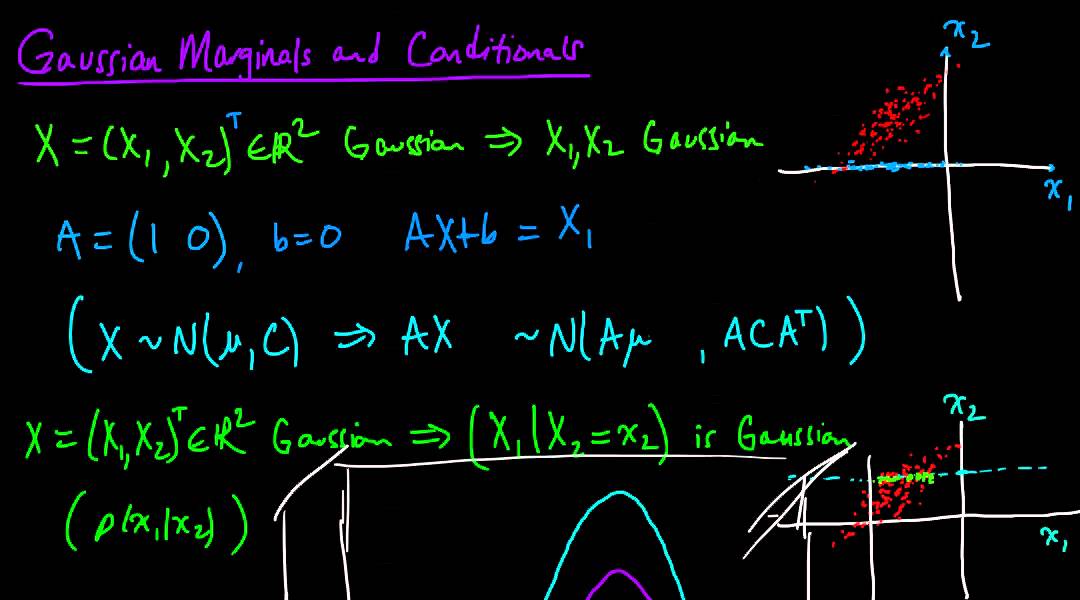 Gaussian Marginals and Conditionals
X = (X₁, X₂)ᵀ ∈ ℝ² Gaussian ⇒ X₁, X₂ Gaussian
x₂
x₁
A = (1 0), b=0 AX+b = X₁
(X ~ N(μ, C) ⇒ AX ~ N(Aμ , ACAᵀ))
X = (X₁, X₂)ᵀ ∈ ℝ² Gaussian ⇒ (X₁ | X₂ = x₂) is Gaussian
x₂
x₁
(p(x₁|x₂))